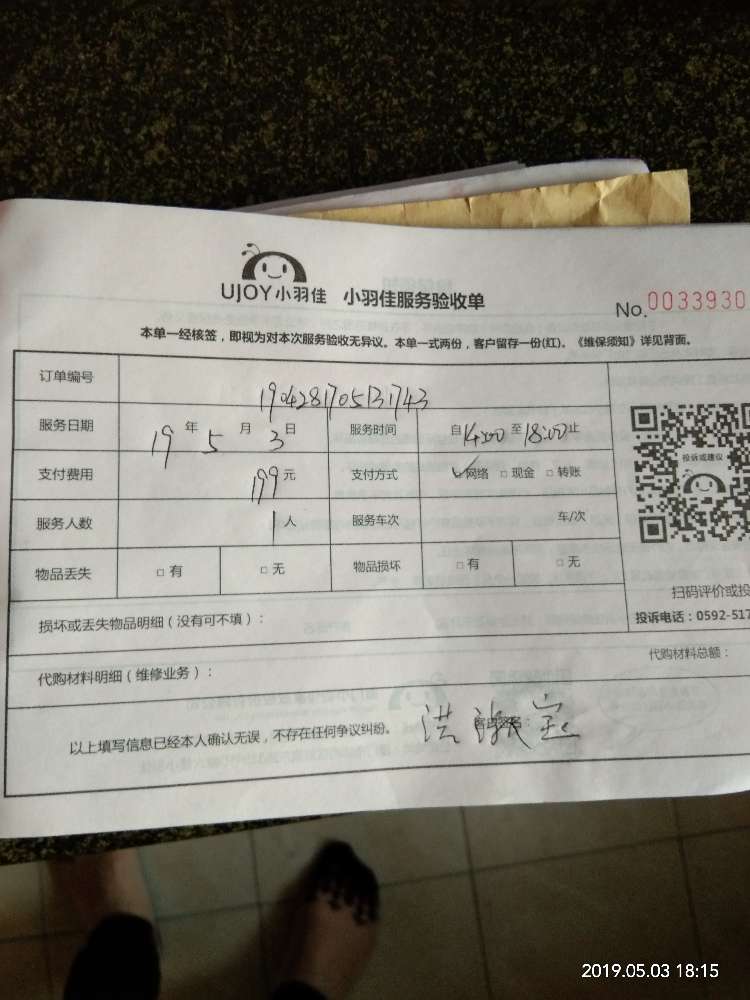 UJOY小羽佳 小羽佳服务验收单
No.0033930
本单一经核签，即视为对本次服务验收无异议。本单一式两份，客户留存一份(红)。《维保须知》详见背面。
订单编号 1904281705131743
服务日期 19年5月3日 服务时间 自14:00至18:00止
投诉或建议
支付费用 199元 支付方式 ☑网络 □现金 □转账
服务人数 1人 服务车次 车/次
物品丢失 □有 □无 物品损坏 □有 □无
扫码评价或投
损坏或丢失物品明细（没有可不填）：
投诉电话：0592-517
代购材料明细（维修业务）：
代购材料总额：
以上填写信息已经本人确认无误，不存在任何争议纠纷。 客户签名： 洪
2019.05.03 18:15